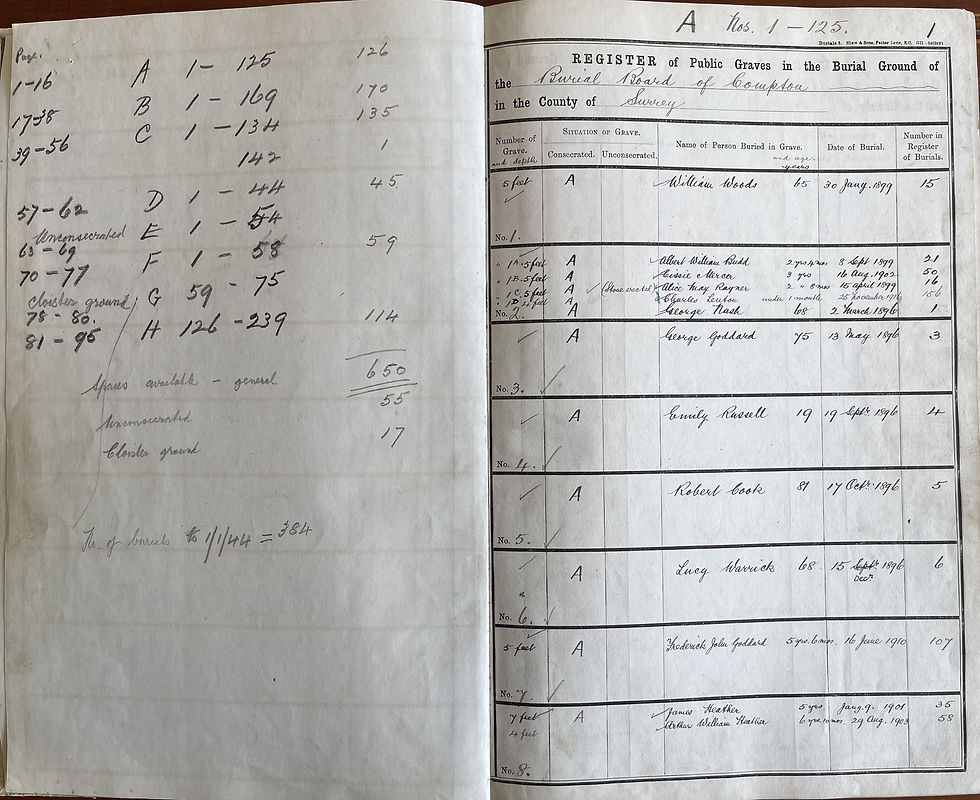 Page.
1-16 A 1 - 125 126
17-38 B 1 - 169 170
39-56 C 1 - 134 135
142 1
57-62 D 1 - 44 45
Unconsecrated E 1 - 54
63-69
70-77 F 1 - 58 59
Cloister ground G 59 - 75
78-80.
81-95 H 126 - 239 114
650
Spaces available - general 55
Unconsecrated 17
Cloister ground
No. of burials to 1/1/44 = 384
A Nos. 1 - 125. 1
Burials 2. Shaw & Sons, Fetter Lane, E.C.
REGISTER of Public Graves in the Burial Ground of
the Burial Board of Compton
in the County of Surrey
Number of Grave. and depth
SITUATION OF GRAVE.
Consecrated. Unconsecrated.
Name of Person Buried in Grave. and age. years
Date of Burial.
Number in Register of Burials.
5 feet A William Woods 65 30 Jany. 1899 15
No. 1.
" 1A. 5 feet A Albert William Budd 2 yrs 4 mos 8 Sept 1899 21
" 1B. 5 feet A Cissie Mercer 3 yrs 16 Aug. 1902 50
" 1C. 5 feet A (Stone erected) Alice May Rayner 2 " 8 mos 15 april 1899 16
" 1D. 4 feet A Charles Lenton under 1 month 25 november 1916 156
No. 2. A George Nash 68 2 March 1896 1
A George Goddard 75 13 May 1896 3
No. 3.
A Emily Russell 19 19 Septr. 1896 4
No. 4.
A Robert Cook 81 17 Octr. 1896 5
No. 5.
A Lucy Warrick 68 15 Septr. 1896 6
Decr.
"
No. 6.
5 feet A Frederick John Goddard 5 yrs. 6 mos. 16 June 1910 107
No. 7.
7 feet A James Heather 5 yrs. Jany. 9. 1901 35
4 feet Arthur William Heather 6 yrs. 10 mos. 29 Aug. 1903 58
No. 8.